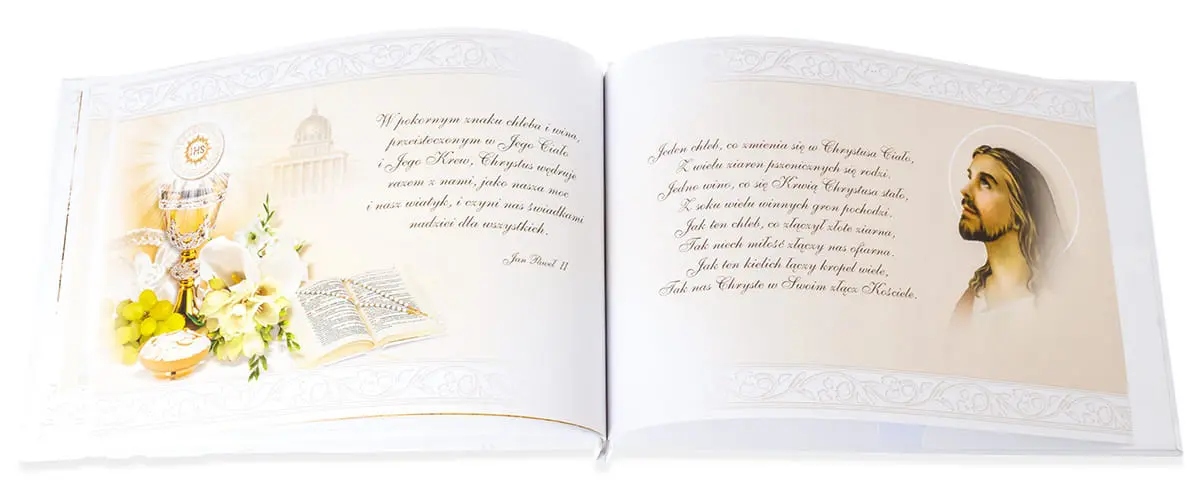 IHS
W pokornym znaku chleba i wina,
przeistoczonym w Jego Ciało
i Jego Krew, Chrystus wędruje
razem z nami, jako nasza moc
i nasz wiatyk, i czyni nas świadkami
nadziei dla wszystkich.
Jan Paweł II
Jeden chleb, co zmienia się w Chrystusa Ciało,
Z wielu ziaren pszenicznych się rodzi.
Jedno wino, co się Krwią Chrystusa stało,
Z soku wielu winnych gron pochodzi.
Jak ten chleb, co złączył złote ziarna,
Tak niech miłość złączy nas ofiarna.
Jak ten kielich łączy kropel wiele,
Tak nas Chryste w Swoim złącz Kościele.